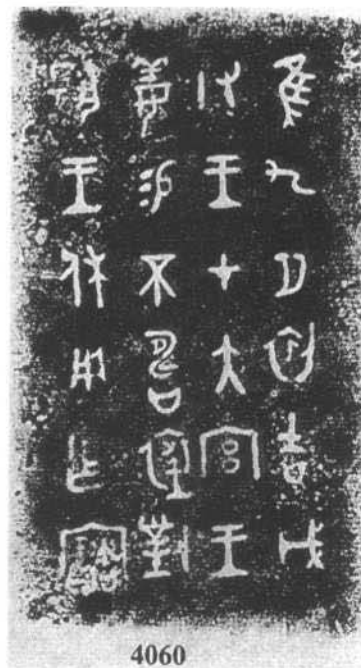 隹九月初吉戊
戌王才大宮王
姜易不壽裘對
揚王休用乍寶
4060